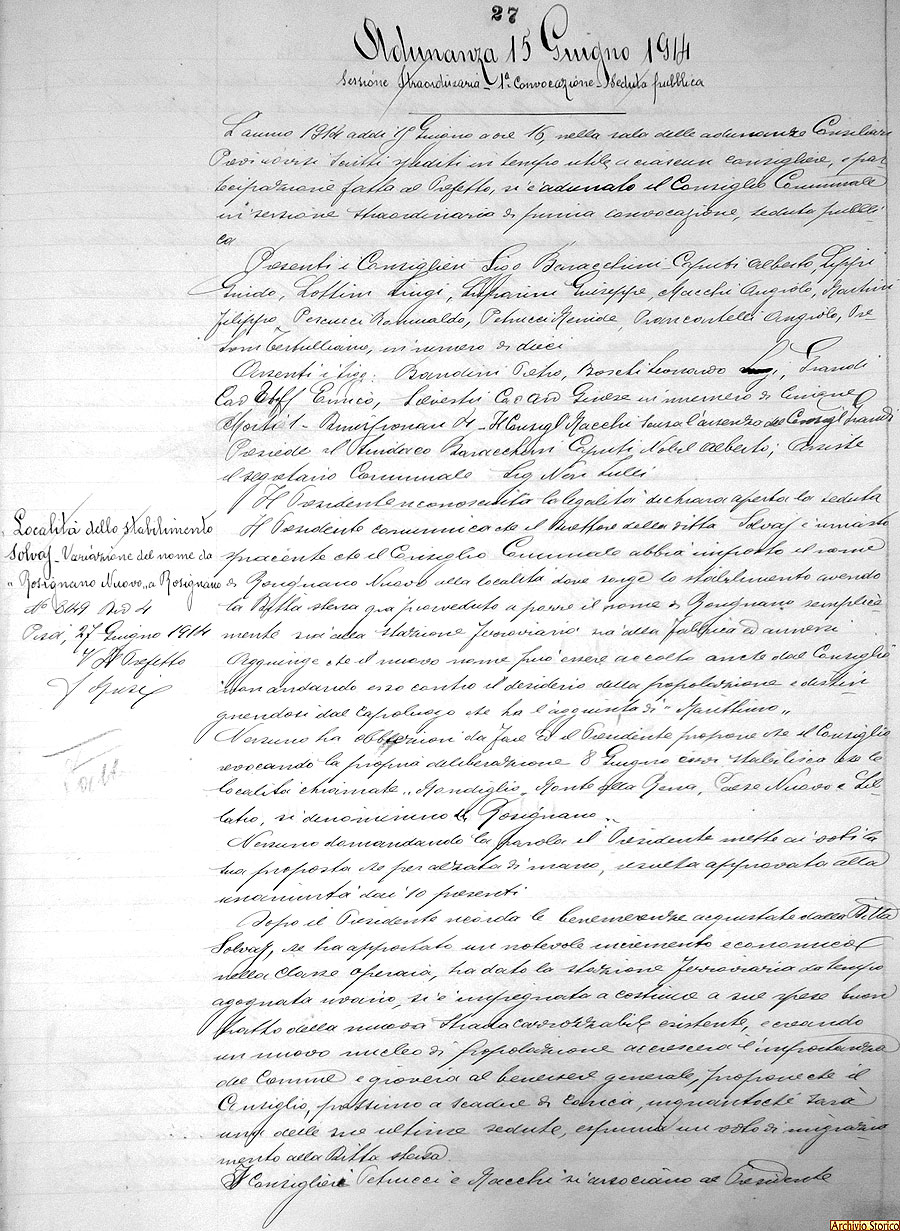 27
Adunanza 15 Giugno 1914
Sessione Straordinaria - 1ª Convocazione - Seduta pubblica
L'anno 1914 addì 15 Giugno a ore 16, nella sala delle adunanze Consiliari
Previ avvisi scritti spediti in tempo utile a ciascun consigliere, e par
tecipazione fatta al Prefetto, si è adunato il Consiglio Comunale
in sessione straordinaria di prima convocazione, seduta pubbli
ca
Presenti i Consiglieri Sigg. Baracchini-Caputi Alberto, Lippi
Guido, Lottini Luigi, Giuseppe, Macchi Angiolo, Martini
Filippo, Pescucci Romualdo, Petrucci Menide, Prancantelli Angiolo, Pre
Tertulliano, in numero di dieci
Assenti i sigg: Bandini Pietro, Boschi Leonardo Grandi
Cav Uff Enrico, Cav Avv in numero di cinque
Morti 1 - Dimissionari 4 - Il Consigl Macchi scusa l'assenza del Consigl Grandi
Presiede il Sindaco Baracchini Caputi Nobil Alberto; assiste
il segretario Comunale Sig Neri Lulli
Il Presidente riconosciuta la legalità dichiara aperta la seduta
Località dello stabilimento
Solvaj - Variazione del nome da
"Rosignano Nuovo" a Rosignano
N° 849 Div 4
Pisa, 27 Giugno 1914
V° Il Prefetto
Il Presidente comunica che il Direttore della ditta Solvaj è rimasto
spiacente che il Consiglio Comunale abbia imposto il nome
di Rosignano Nuovo alla località dove sorge lo stabilimento avendo
la Ditta stessa già provveduto a porre il nome di Rosignano semplice
mente sia alla stazione ferroviaria sia alla fabbrica ed annessi
Aggiunge che il nuovo nome può essere accolto anche dal Consiglio
non andando esso contro il desiderio della popolazione e distin
guendosi dal Capoluogo che ha l'aggiunta di "Marittimo"
Nessuno ha obbiezioni da fare ed il Presidente propone che il Consiglio
revocando la propria deliberazione 8 Giugno corr stabilisca che le
località chiamate "Mondiglio, Monte alla Rena, Paese Nuovo e Lil
latro, si denominino Rosignano"
Nessuno domandando la parola il Presidente mette ai voti la
sua proposta che per alzata di mano, risulta approvata alla
unanimità dai 10 presenti
Dopo il Presidente ricorda le benemerenze acquistate dalla Ditta
Solvaj, che ha apportato un notevole incremento economico
nella Classe operaia, ha dato la stazione ferroviaria da tempo
agognata invano, si è impegnata a costruire a sue spese buon
tratto della nuova strada carrozzabile esistente, e creando
un nuovo nucleo di popolazione accrescerà l'importanza
del Comune e gioverà al benessere generale, propone che il
Consiglio, prossimo a scadere di carica, inquantoché sarà
una delle sue ultime sedute, esprima un voto di ringrazia
mento alla Ditta stessa
I Consiglieri Petrucci e Macchi si associano al Presidente
Archivio Storico